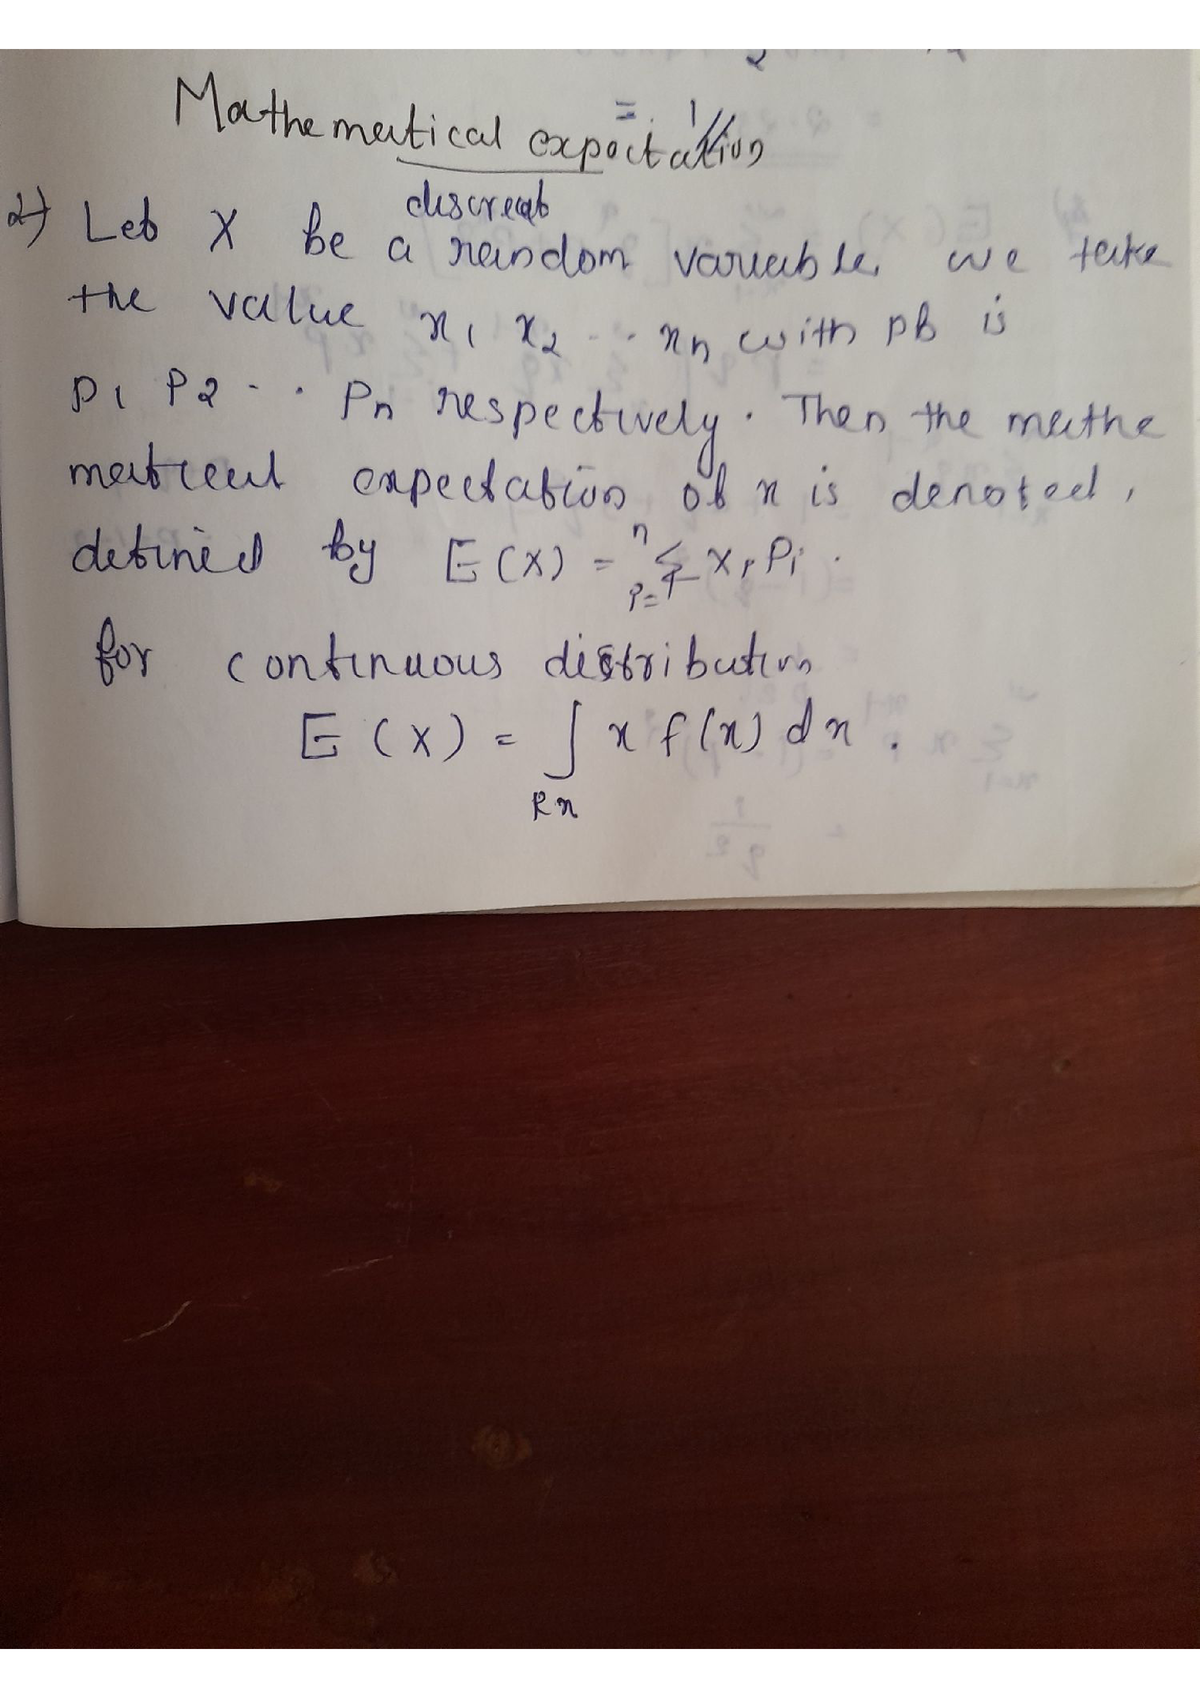 = 1//
Mathematical expectation
2) Let X be a discreat random variable, we take
the value x1 x2 .. xn with pb is
P1 P2 .. Pn respectively. Then the mathe
matical expectation of x is denoted,
defined by E(X) = n Σ i=1 Xi Pi .
for continuous distribution
E(X) = ∫ x f(x) dx .
Rx